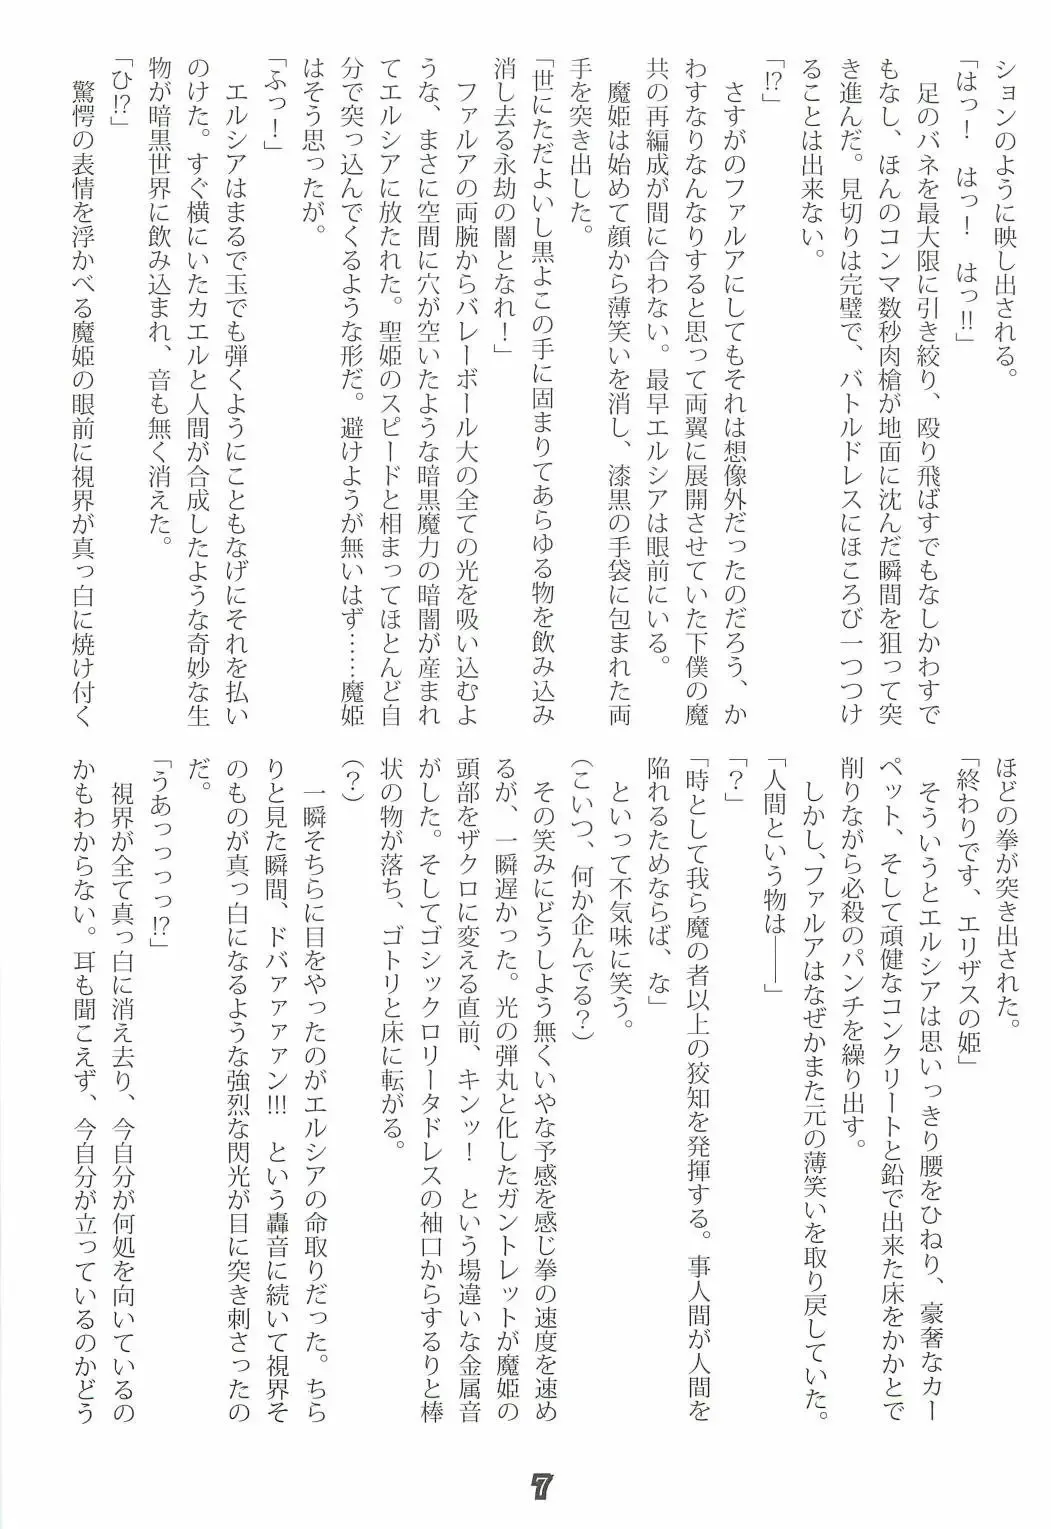 ションのように映し出される。
「はっ！　はっ！　はっ!!」
　足のバネを最大限に引き絞り、殴り飛ばすでもなしかわすで
もなし、ほんのコンマ数秒肉槍が地面に沈んだ瞬間を狙って突
き進んだ。見切りは完璧で、バトルドレスにほころび一つつけ
ることは出来ない。
「!?」
　さすがのファルアにしてもそれは想像外だったのだろう、か
わすなりなんなりすると思って両翼に展開させていた下僕の魔
共の再編成が間に合わない。最早エルシアは眼前にいる。
　魔姫は始めて顔から薄笑いを消し、漆黒の手袋に包まれた両
手を突き出した。
「世にただよいし黒よこの手に固まりてあらゆる物を飲み込み
消し去る永劫の闇となれ！」
　ファルアの両腕からバレーボール大の全ての光を吸い込むよ
うな、まさに空間に穴が空いたような暗黒魔力の暗闇が産まれ
てエルシアに放たれた。聖姫のスピードと相まってほとんど自
分で突っ込んでくるような形だ。避けようが無いはず……魔姫
はそう思ったが。
「ふっ！」
　エルシアはまるで玉でも弾くようにこともなげにそれを払い
のけた。すぐ横にいたカエルと人間が合成したような奇妙な生
物が暗黒世界に飲み込まれ、音も無く消えた。
「ひ!?」
　驚愕の表情を浮かべる魔姫の眼前に視界が真っ白に焼け付く
ほどの拳が突き出された。
「終わりです、エリザスの姫」
　そういうとエルシアは思いっきり腰をひねり、豪奢なカー
ペット、そして頑健なコンクリートと鉛で出来た床をかかとで
削りながら必殺のパンチを繰り出す。
　しかし、ファルアはなぜかまた元の薄笑いを取り戻していた。
「人間という物は――」
「？」
「時として我ら魔の者以上の狡知を発揮する。事人間が人間を
陥れるためならば、な」
　といって不気味に笑う。
（こいつ、何か企んでる？）
　その笑みにどうしよう無くいやな予感を感じ拳の速度を速め
るが、一瞬遅かった。光の弾丸と化したガントレットが魔姫の
頭部をザクロに変える直前、キンッ！　という場違いな金属音
がした。そしてゴシックロリータドレスの袖口からするりと棒
状の物が落ち、ゴトリと床に転がる。
（？）
　一瞬そちらに目をやったのがエルシアの命取りだった。ちら
りと見た瞬間、ドバァァァァン!!!　という轟音に続いて視界そ
のものが真っ白になるような強烈な閃光が目に突き刺さったの
だ。
「うあっっっっっ!?」
　視界が全て真っ白に消え去り、今自分が何処を向いているの
かもわからない。耳も聞こえず、今自分が立っているのかどう
7